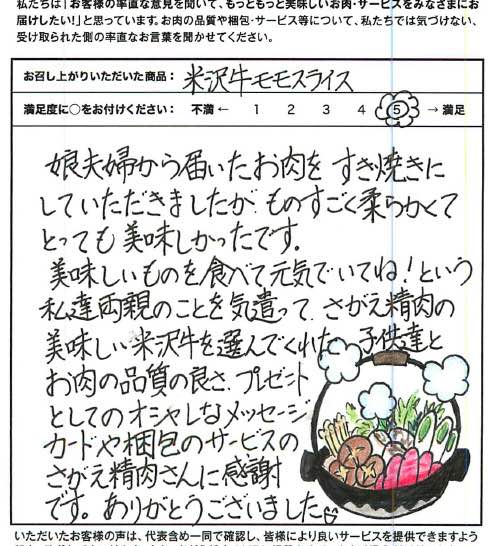 私たちは「お客様の率直な意見を聞いて、もっともっと美味しいお肉・サービスをみなさまにお
届けしたい!」と思っています。お肉の品質や梱包・サービス等について、私たちでは気づけない、
受け取られた側の率直なお言葉を聞かせてください。
お召し上がりいただいた商品: 米沢牛モモスライス
満足度に○をお付けください: 不満 ← 1 2 3 4 5 → 満足
娘夫婦から届いたお肉を すき焼きに
していただきましたが ものすごく柔らかくて
とっても美味しかったです。
美味しいものを食べて元気でいてね!という
私達両親のことを気遣って、さがえ精肉の
美味しい米沢牛を選んでくれた 子供達と
お肉の品質の良さ、プレゼント
としてのオシャレなメッセージ
カードや梱包のサービスの
さがえ精肉さんに感謝
です。ありがとうございました
いただいたお客様の声は、代表含め一同で確認し、皆様により良いサービスを提供できますよう